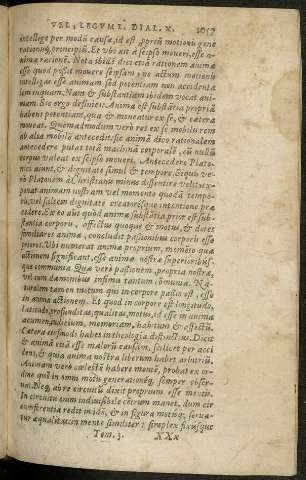 VEL, LEGVMI. DIAL. X. 1057
intellige per modũ causæ, id est, portũ motionis gene
rationisq́; principiũ. Et ubi ait à seipso moueri, esse a-
nimæ rationẽ. Nota ibidẽ dici etiã rationem animæ
esse quod possit mouere seipsam, ne actum motionis
intelligas esse animam sed potentiam non accidenta
lem inquam. Nam & substantiam ibidem vocat ani-
mam. Sic ergo definietur. Anima est substãtia propriã
habens potentiam, qua & moueatur ex se, & cætera
moueat. Quemadmodum verò res ex se mobilis rem
ab alia mobilẽ antecedit, sic animã dico rationalem
antecedere putat totã machinã corporalẽ, cũ nullũ
corpus valeat ex seipso moueri. Antecedere Plato-
nici aiunt, & dignitate simul & tempore. Sequi ve-
rò Platonem à Christianis minus dissentire velit, ex-
ponat animam nostram vel momento quodã tempo-
ris, vel saltem dignitate creatorisque intentione præ
cedere. Ex eo aũt quòd animæ substãtia prior est sub-
stantia corporis, affectus quoque & motus, & dotes
familiares animæ, concludit passionibus corporis esse
priores. Vbi numerat animæ proprium, memẽto quæ
actionem significant, esse animæ nostræ superioribus-
que communia. Quæ verò passionem, propria nostræ,
vel cum dæmonibus infima tantum communia. Na-
turalem tamen motum qui in corpore passio est, esse
in anima actionem. Et quod in corpore est longitudo,
latitudo, profunditas, qualitas, motus, id esse in anima
acumen, iudicium, memoriam, habitum & affectũ.
Cætera eiusmodi habet in theologia distinctiùs. Dicit
& animã etiã esse malorũ causam, scilicet per acci
dens, & quia anima nostra liberum habet arbitriũ.
Animam verò cælestẽ habere mentẽ, probat ex or-
dine quẽ in omni motu generationẽq́; semper obser-
uat. Neq́; abre circuitũ dixit proprium esse mentis.
In circuitu enim indiuisibile cẽtrum manet, dum cir
cumferentia redit inidẽ, & in figura motuq́; serua-
tur æqualitas, in mente similiter, simplex fixusque
Tom. 3. XXx